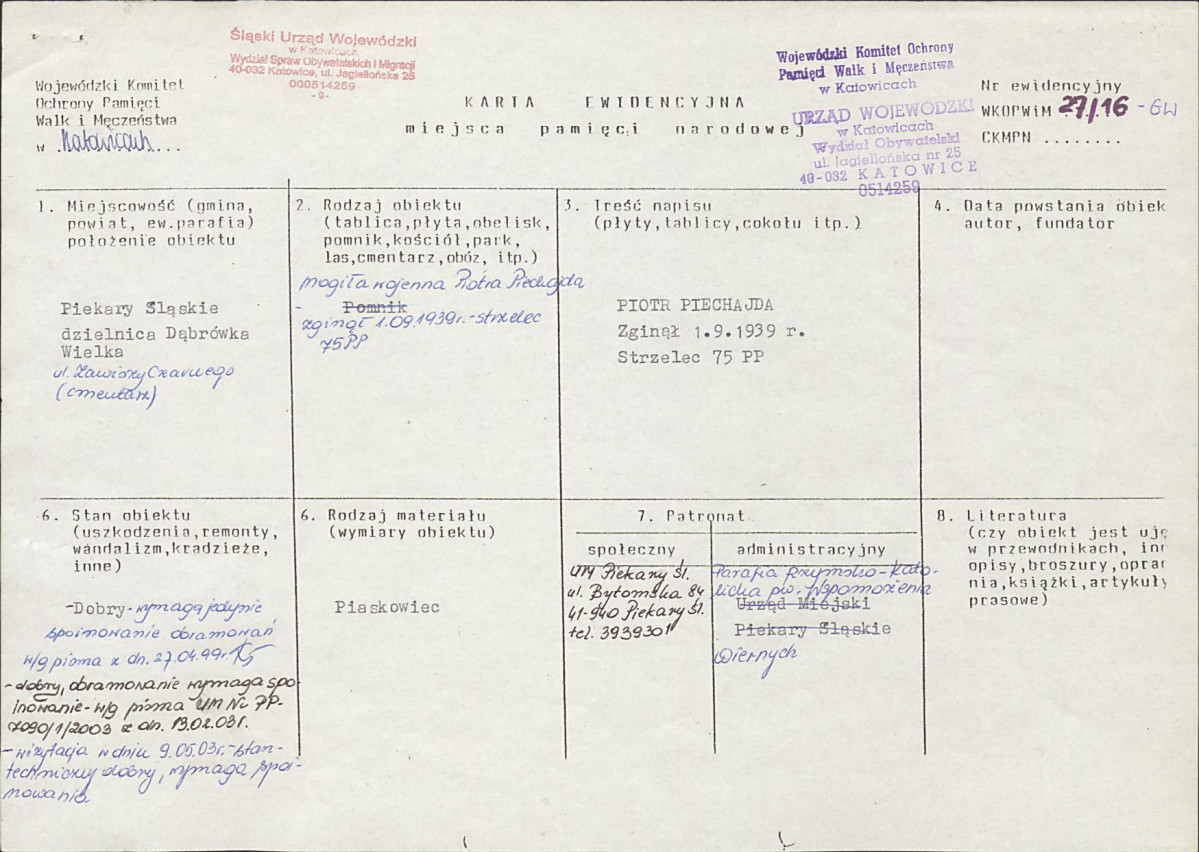 Śląski Urząd Wojewódzki
w Katowicach
Wydział Spraw Obywatelskich i Migracji
40-032 Katowice, ul. Jagiellońska 25
000514259
-9-
Wojewódzki Komitet Ochrony
Pamięci Walk i Męczeństwa
w Katowicach
URZĄD WOJEWÓDZKI
w Katowicach
Wydział Obywatelski
ul. Jagiellońska nr 25
40-032 KATOWICE
0514259
Wojewódzki Komitet
Ochrony Pamięci
Walk i Męczeństwa
w .Katowicach...
KARTA EWIDENCYJNA
miejsca pamięci narodowej
Nr ewidencyjny
WKOPWiM 27/16 - GW
CKMPN ........
1. Miejscowość (gmina,
powiat, ew.parafia)
położenie obiektu
Piekary Śląskie
dzielnica Dąbrówka
Wielka
ul. Zawiszy Czarnego
(cmentarz)
2. Rodzaj obiektu
(tablica,płyta,obelisk,
pomnik,kościół,park,
las,cmentarz,obóz, itp.)
mogiła wojenna Piotra Piechajda
- Pomnik
zginął 1.09.1939r. - strzelec
75 PP
3. Treść napisu
(płyty,tablicy,cokołu itp.)
PIOTR PIECHAJDA
Zginął 1.9.1939 r.
Strzelec 75 PP
4. Data powstania obiek
autor, fundator
6. Stan obiektu
(uszkodzenia,remonty,
wandalizm,kradzieże,
inne)
-Dobry- wymaga jedynie
spoinowanie obramowań
w/g pisma z dn. 27.04.99r.
- dobry, obramowanie wymaga spo-
inowanie - w/g pisma UM Nr PP-
7090/1/2003 z dn. 13.02.03r.
- wizytacja w dniu 9.05.03r. - stan-
techniczny dobry, wymaga spoi-
nowania
6. Rodzaj materiału
(wymiary obiektu)
Piaskowiec
7. Patronat
społeczny
UM Piekary Śl.
ul. Bytomska 84
41-940 Piekary Śl.
tel. 3939301
administracyjny
Parafia Rzymsko-Kato-
licka pw. Wspomożenia
Urząd Miejski
Piekary Śląskie
Wiernych
8. Literatura
(czy obiekt jest uję
w przewodnikach, inn
opisy,broszury,opra
nia,książki,artykuły
prasowe)